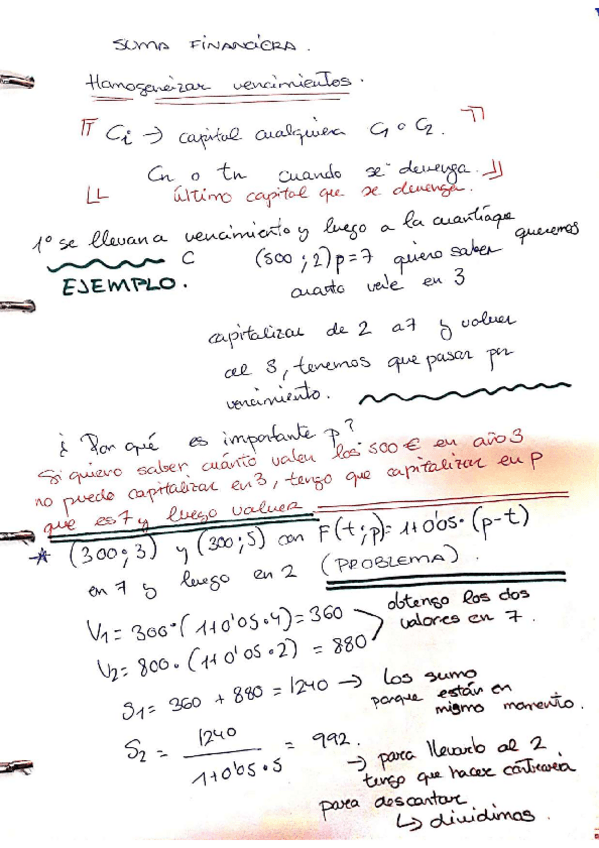 SUMA FINANCIERA.
Homogeneizar vencimientos.
Ci → capital cualquiera C1 o C2.
Cn o tn cuando se devenga.
último capital que se devenga.
1º se llevan a vencimiento y luego a la cuantía que queremos
C (500 ; 2) p=7 quiero saber
EJEMPLO. cuanto vale en 3
capitalizar de 2 a 7 y volver
al 3, tenemos que pasar por
vencimiento.
¿ Por qué es importante p?
Si quiero saber cuánto valen los 500 € en año 3
no puedo capitalizar en 3, tengo que capitalizar en p
que es 7 y luego volver
* (300 ; 3) y (300 ; 5) con F(t ; p) = 1+0'05 · (p-t)
en 7 y luego en 2 (PROBLEMA).
V1 = 300 · (1+0'05 · 4) = 360
obtengo los dos
valores en 7.
V2 = 800 · (1+0'05 · 2) = 880
S1 = 360 + 880 = 1240 → los sumo
porque están en
mismo momento.
S2 = 1240 / 1+0'05 · 5 = 992.
→ para llevarlo al 2
tengo que hacer contraria
para descontar
↳ dividimos.